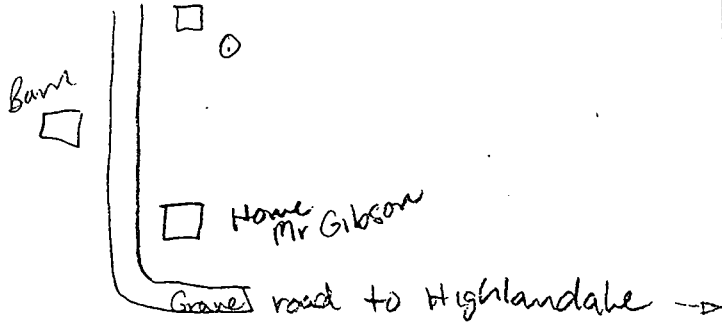 Barn
Home
Mr Gibson
Gravel road to Highlandale